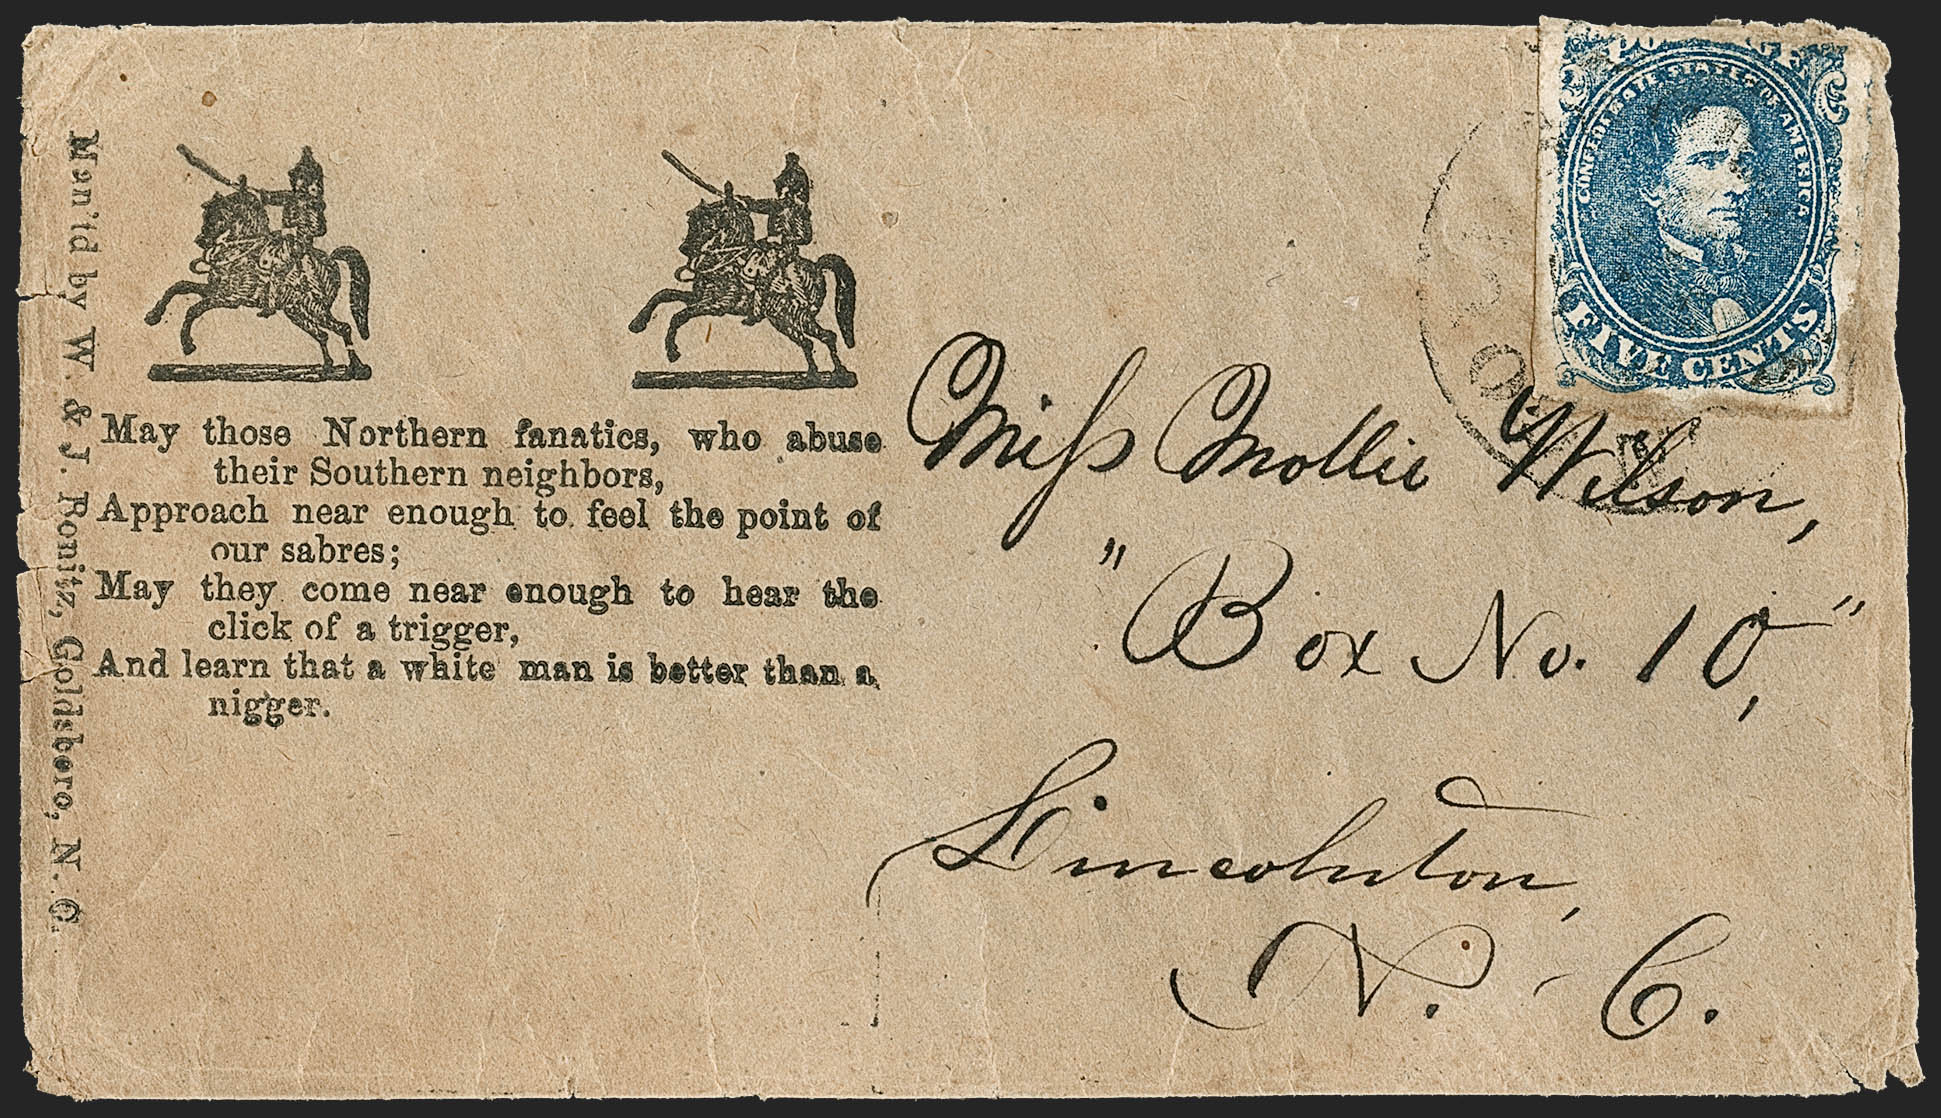 Man'td by W. & J. Bonitz, Goldsboro, N. C.
May those Northern fanatics, who abuse
their Southern neighbors,
Approach near enough to feel the point of
our sabres;
May they come near enough to hear the
click of a trigger,
And learn that a white man is better than a
nigger.
CONFEDERATE STATES OF AMERICA
FIVE CENTS
Miss Mollie Wilson,
"Box No. 10,"
Lincolnton,
N. C.